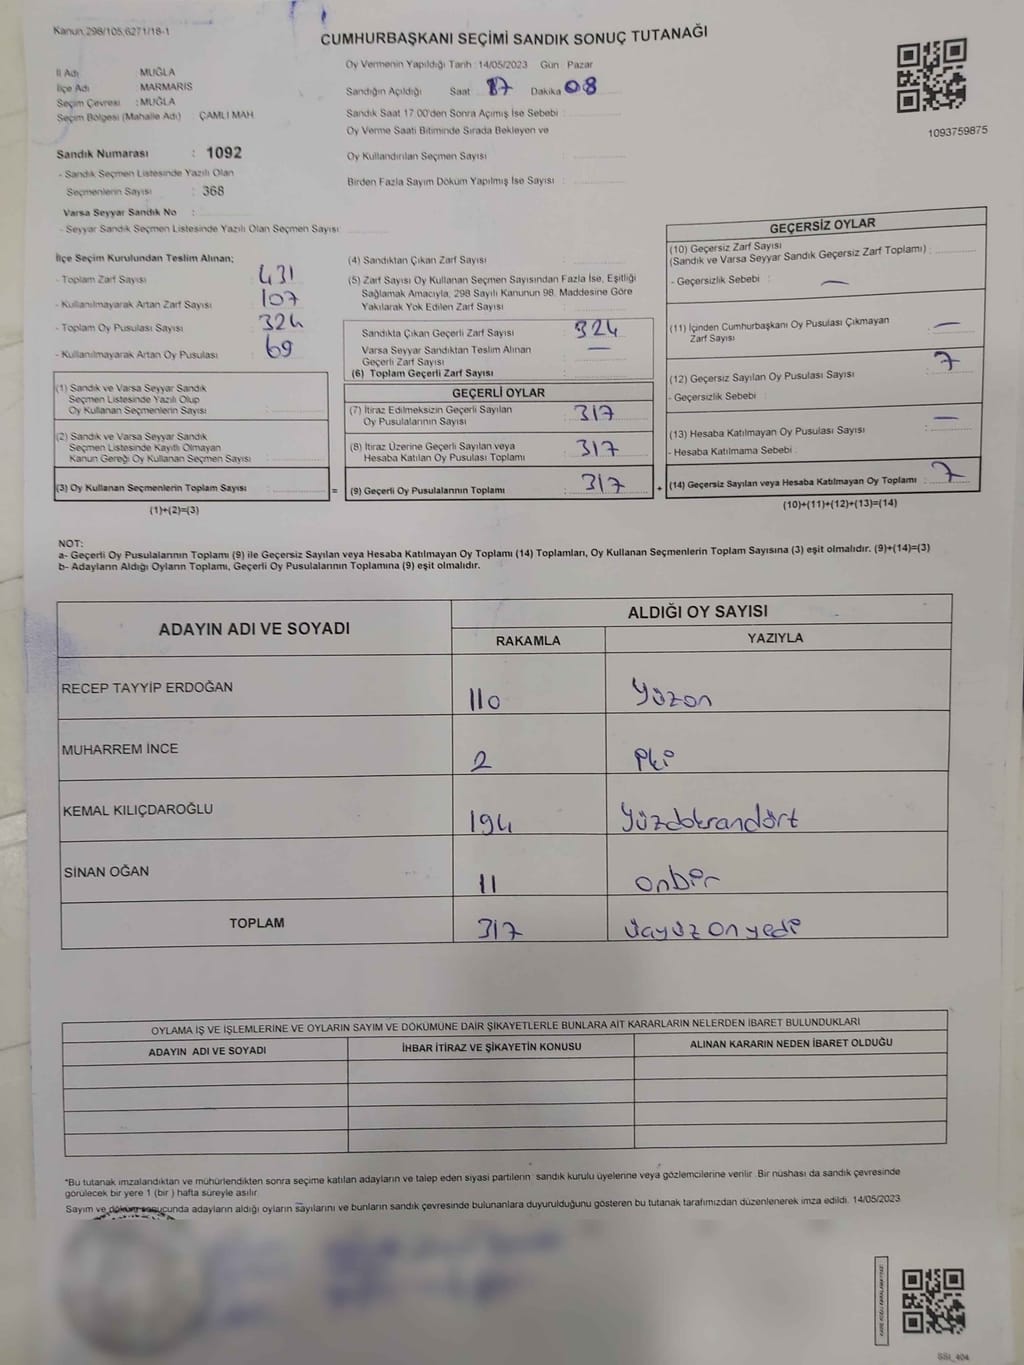 Kanun,298/105,6271/18-1
CUMHURBAŞKANI SEÇİMİ SANDIK SONUÇ TUTANAĞI
İl Adı MUĞLA
İlçe Adı MARMARIS
Seçim Çevresi : MUĞLA
Seçim Bölgesi (Mahalle Adı) ÇAMLI MAH
Sandık Numarası : 1092
- Sandık Seçmen Listesinde Yazılı Olan
Seçmenlerin Sayısı : 368
Varsa Seyyar Sandık No :
- Seyyar Sandık Seçmen Listesinde Yazılı Olan Seçmen Sayısı
Oy Vermenin Yapıldığı Tarih : 14/05/2023 Gün : Pazar
Sandığın Açıldığı Saat 17 Dakika 08
Sandık Saat 17:00'den Sonra Açımış İse Sebebi :
Oy Verme Saati Bitiminde Sırada Bekleyen ve
Oy Kullandırılan Seçmen Sayısı :
Birden Fazla Sayım Döküm Yapılmış İse Sayısı :
1093759875
İlçe Seçim Kurulundan Teslim Alınan;
- Toplam Zarf Sayısı : 431
- Kullanılmayarak Artan Zarf Sayısı : 107
- Toplam Oy Pusulası Sayısı : 324
- Kullanılmayarak Artan Oy Pusulası : 69
(1) Sandık ve Varsa Seyyar Sandık
Seçmen Listesinde Yazılı Olup
Oy Kullanan Seçmenlerin Sayısı :
(2) Sandık ve Varsa Seyyar Sandık
Seçmen Listesinde Kayıtlı Olmayan
Kanun Gereği Oy Kullanan Seçmen Sayısı :
(3) Oy Kullanan Seçmenlerin Toplam Sayısı : =
(1)+(2)=(3)
(4) Sandıktan Çıkan Zarf Sayısı :
(5) Zarf Sayısı Oy Kullanan Seçmen Sayısından Fazla İse, Eşitliği
Sağlamak Amacıyla, 298 Sayılı Kanunun 98. Maddesine Göre
Yakılarak Yok Edilen Zarf Sayısı :
Sandıkta Çıkan Geçerli Zarf Sayısı : 324
Varsa Seyyar Sandıktan Teslim Alınan
Geçerli Zarf Sayısı : —
(6) Toplam Geçerli Zarf Sayısı :
GEÇERLİ OYLAR
(7) İtiraz Edilmeksizin Geçerli Sayılan
Oy Pusulalarının Sayısı : 317
(8) İtiraz Üzerine Geçerli Sayılan veya
Hesaba Katılan Oy Pusulası Toplamı : 317
(9) Geçerli Oy Pusulalarının Toplamı : 317 +
GEÇERSİZ OYLAR
(10) Geçersiz Zarf Sayısı
(Sandık ve Varsa Seyyar Sandık Geçersiz Zarf Toplamı) :
- Geçersizlik Sebebi : —
(11) İçinden Cumhurbaşkanı Oy Pusulası Çıkmayan
Zarf Sayısı : —
(12) Geçersiz Sayılan Oy Pusulası Sayısı : 7
- Geçersizlik Sebebi :
(13) Hesaba Katılmayan Oy Pusulası Sayısı : —
- Hesaba Katılmama Sebebi :
(14) Geçersiz Sayılan veya Hesaba Katılmayan Oy Toplamı : 7
(10)+(11)+(12)+(13)=(14)
NOT:
a- Geçerli Oy Pusulalarının Toplamı (9) ile Geçersiz Sayılan veya Hesaba Katılmayan Oy Toplamı (14) Toplamları, Oy Kullanan Seçmenlerin Toplam Sayısına (3) eşit olmalıdır. (9)+(14)=(3)
b- Adayların Aldığı Oyların Toplamı, Geçerli Oy Pusulalarının Toplamına (9) eşit olmalıdır.
ADAYIN ADI VE SOYADI
ALDIĞI OY SAYISI
RAKAMLA YAZIYLA
RECEP TAYYİP ERDOĞAN 110 Yüzon
MUHARREM İNCE 2 İki
KEMAL KILIÇDAROĞLU 194 Yüzdoksandört
SİNAN OĞAN 11 onbir
TOPLAM 317 üçyüzonyedi
OYLAMA İŞ VE İŞLEMLERİNE VE OYLARIN SAYIM VE DÖKÜMÜNE DAİR ŞİKAYETLERLE BUNLARA AİT KARARLARIN NELERDEN İBARET BULUNDUKLARI
ADAYIN ADI VE SOYADI İHBAR İTİRAZ VE ŞİKAYETİN KONUSU ALINAN KARARIN NEDEN İBARET OLDUĞU
*Bu tutanak imzalandıktan ve mühürlendikten sonra seçime katılan adayların ve talep eden siyasi partilerin sandık kurulu üyelerine veya gözlemcilerine verilir. Bir nüshası da sandık çevresinde
görülecek bir yere 1 (bir ) hafta süreyle asılır.
Sayım ve döküm sonucunda adayların aldığı oyların sayılarını ve bunların sandık çevresinde bulunanlara duyurulduğunu gösteren bu tutanak tarafımızdan düzenlenerek imza edildi. 14/05/2023
KARE KODU KARALAMAYINIZ
SSI_404